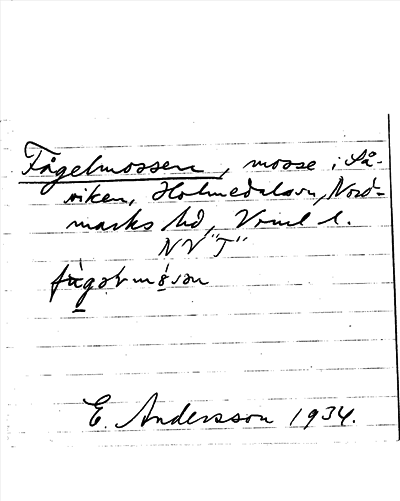 Fågelmossen, mosse i Så-
viken, Holmedalssn, Nord-
marks hd, Vrml l.
NV "T"
fùgəlmósən
E. Andersson 1934.